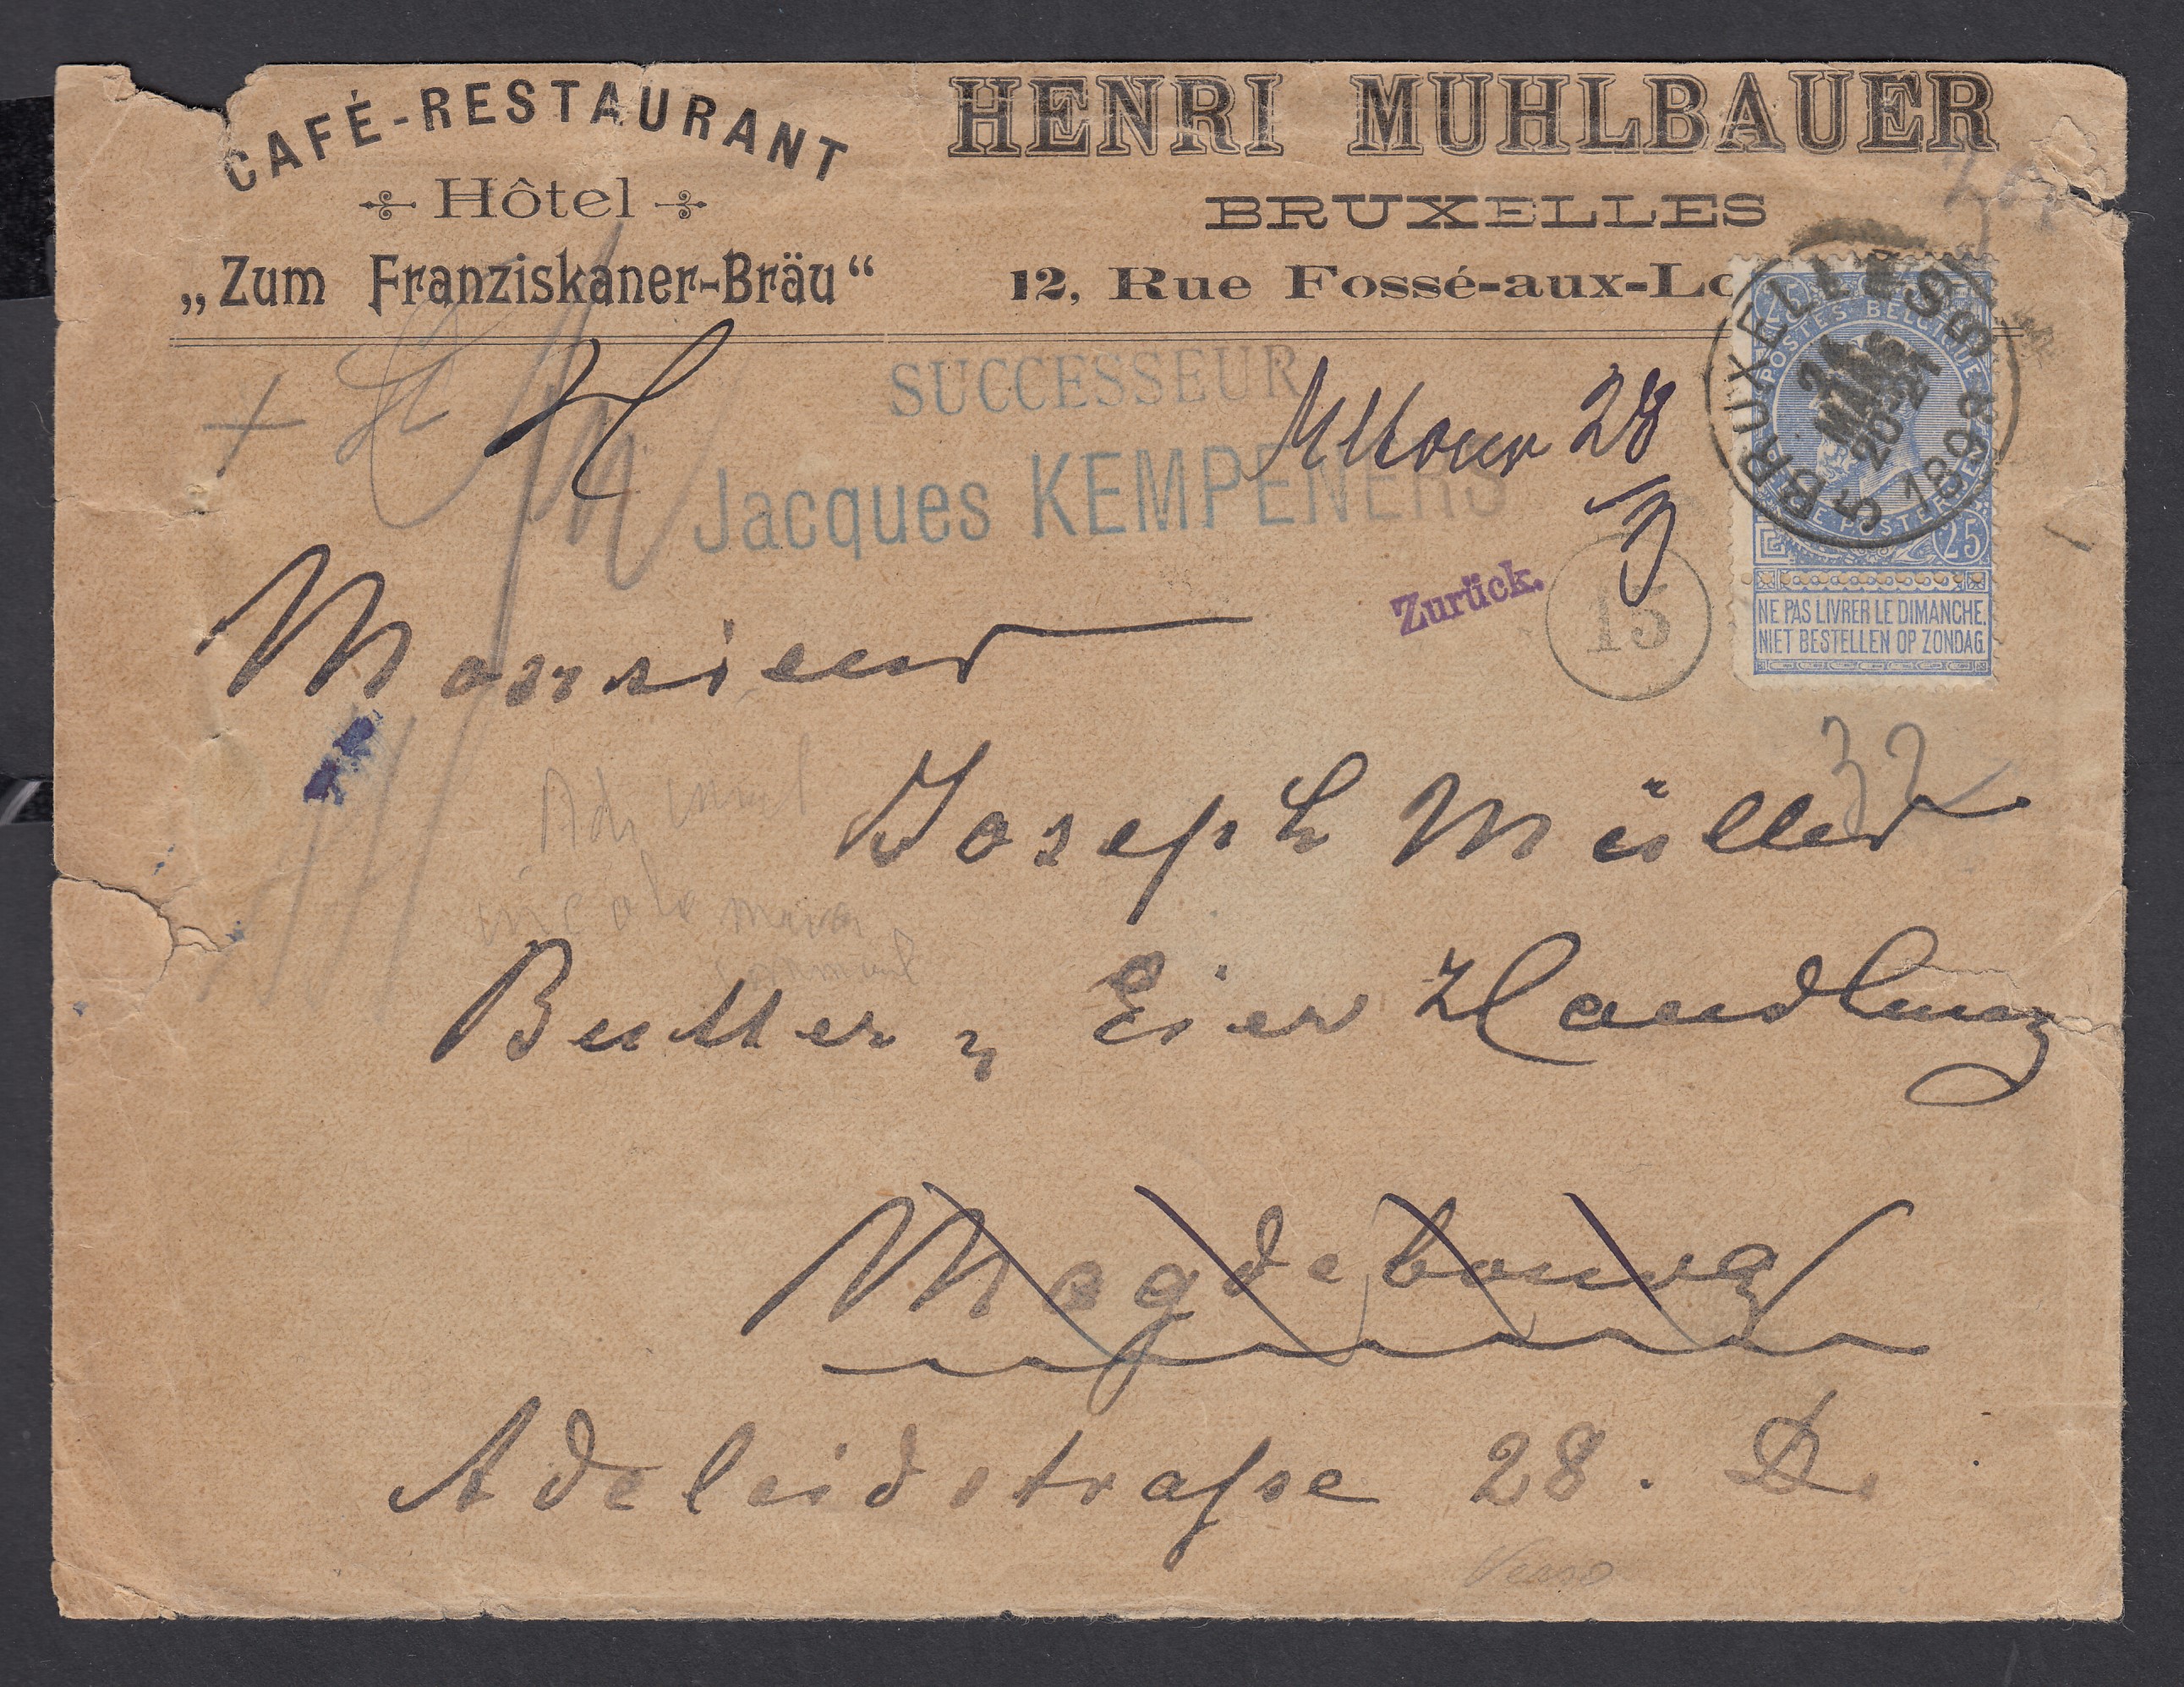 CAFÉ-RESTAURANT
Hôtel
„Zum Franziskaner-Bräu“
HENRI MUHLBAUER
BRUXELLES
12, Rue Fossé-aux-Lo
SUCCESSEUR
Jacques KEMPENERS
28
3
Zurück.
15
BRUXELLES
24
MARS
20-21
1898
5
POSTES BELGIQUE
25
NE PAS LIVRER LE DIMANCHE.
NIET BESTELLEN OP ZONDAG.
32
Monsieur
Joseph Müller
Butter u Eier Handlung
Magdebourg
Adeleidstraße 28. D.
Verso